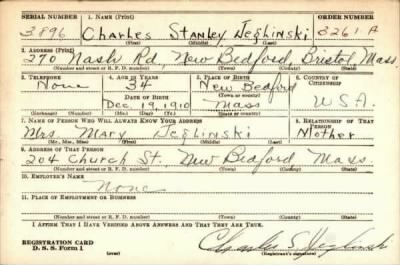 SERIAL NUMBER 1. NAME (Print) ORDER NUMBER
3896 Charles Stanley Jeglinski 3261 A
2. ADDRESS (Print)
270 Nash Rd, New Bedford, Bristol, Mass.
(Number and street or R. F. D. number) (Town) (County) (State)
3. TELEPHONE 4. AGE IN YEARS 5. PLACE OF BIRTH 6. COUNTRY OF CITIZENSHIP
None 34 New Bedford
DATE OF BIRTH (Town or county)
Dec. 19, 1910 Mass U.S.A.
(Mo.) (Day) (Yr.) (State or country)
7. NAME OF PERSON WHO WILL ALWAYS KNOW YOUR ADDRESS 8. RELATIONSHIP OF THAT PERSON
Mrs. Mary Jeglinski Mother
(Mr., Mrs., Miss) (First) (Middle) (Last)
9. ADDRESS OF THAT PERSON
204 Church St. New Bedford Mass.
(Number and street or R. F. D. number) (Town) (County) (State)
10. EMPLOYER'S NAME
None
11. PLACE OF EMPLOYMENT OR BUSINESS
(Number and street or R. F. D. number) (Town) (County) (State)
I AFFIRM THAT I HAVE VERIFIED ABOVE ANSWERS AND THAT THEY ARE TRUE.
REGISTRATION CARD
D. S. S. Form 1 (over) Charles S.
(Registrant's signature)